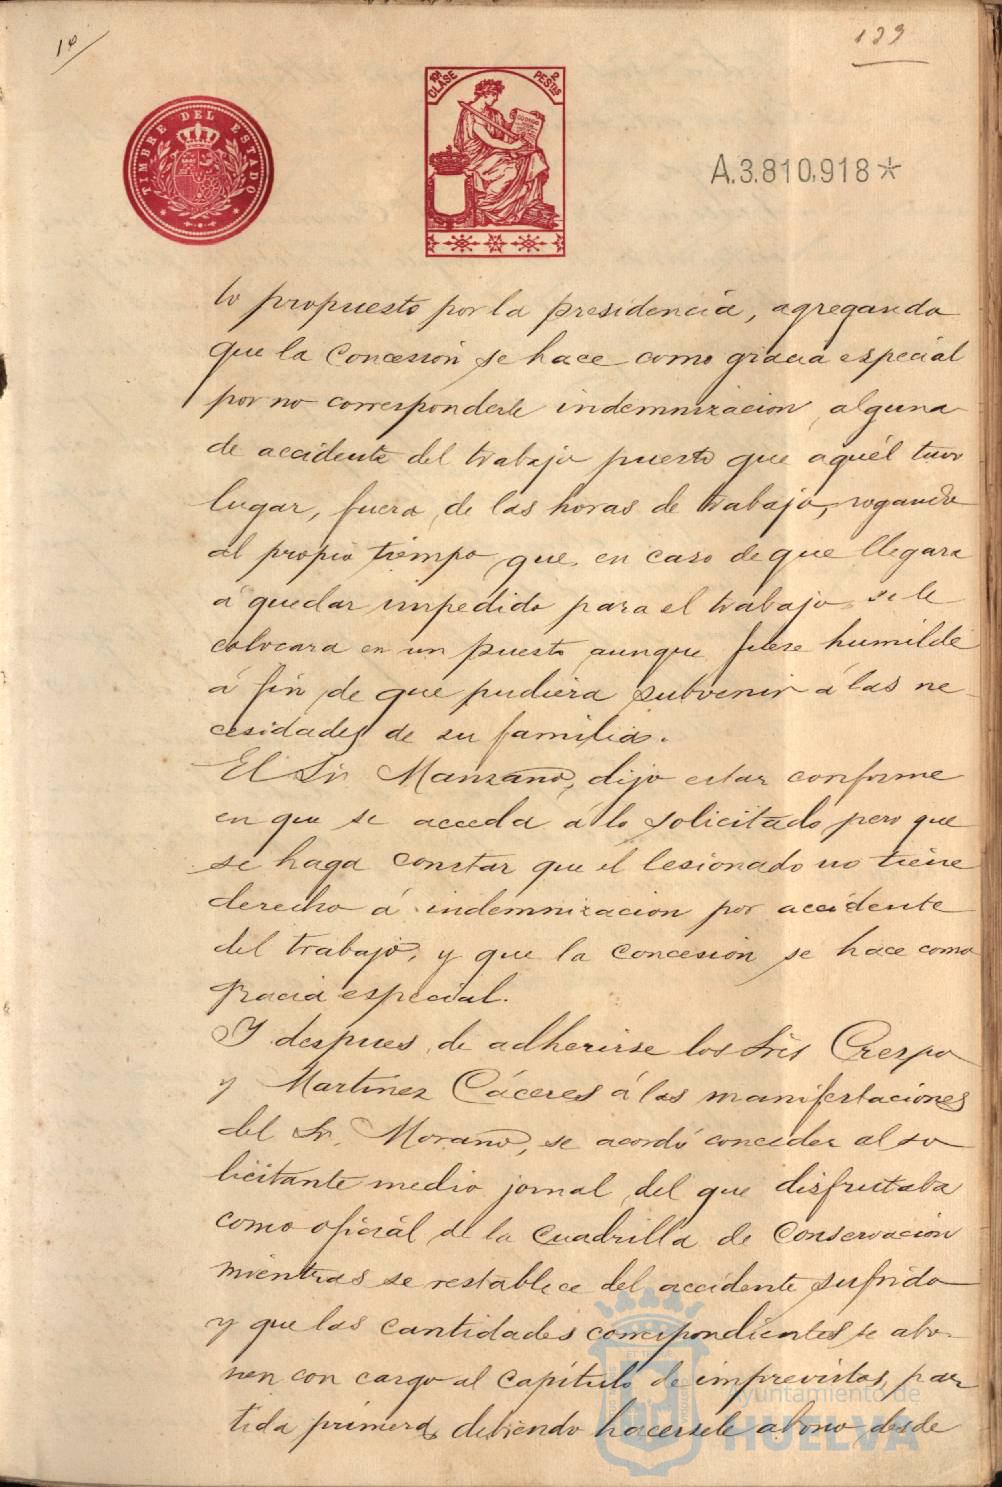 139
TIMBRE DEL ESTADO
10ª CLASE
2 PESTAS
A.3.810.918*
lo propuesto por la presidencia, agregando
que la concesión se hace como gracia especial
por no corresponderle indemnizacion alguna
de accidente del trabajo puesto que aquél tuvo
lugar, fuera de las horas de trabajo, rogando
al propio tiempo que en caso de que llegara
á quedar impedido para el trabajo se le
colocara en un puesto aunque fuese humilde
á fin de que pudiera subvenir á las ne-
cesidades de su familia.
El Sr. Manzano, dijo estar conforme
en que se acceda á lo solicitado pero que
se haga constar que el lesionado no tiene
derecho á indemnizacion por accidente
del trabajo, y que la concesión se hace como
gracia especial.
Y despues de adherirse los Sres Crespo
y Martinez Cáceres á las manifestaciones
del Sr. Morano, se acordó conceder al so
licitante medio jornal del que disfrutaba
como oficial de la cuadrilla de Conservación
mientras se restablece del accidente sufrido
y que las cantidades correspondientes se abo-
nen con cargo al Capítulo de imprevistos, par
tida primera, debiendo hacersele abono desde
Ayuntamiento de
HUELVA